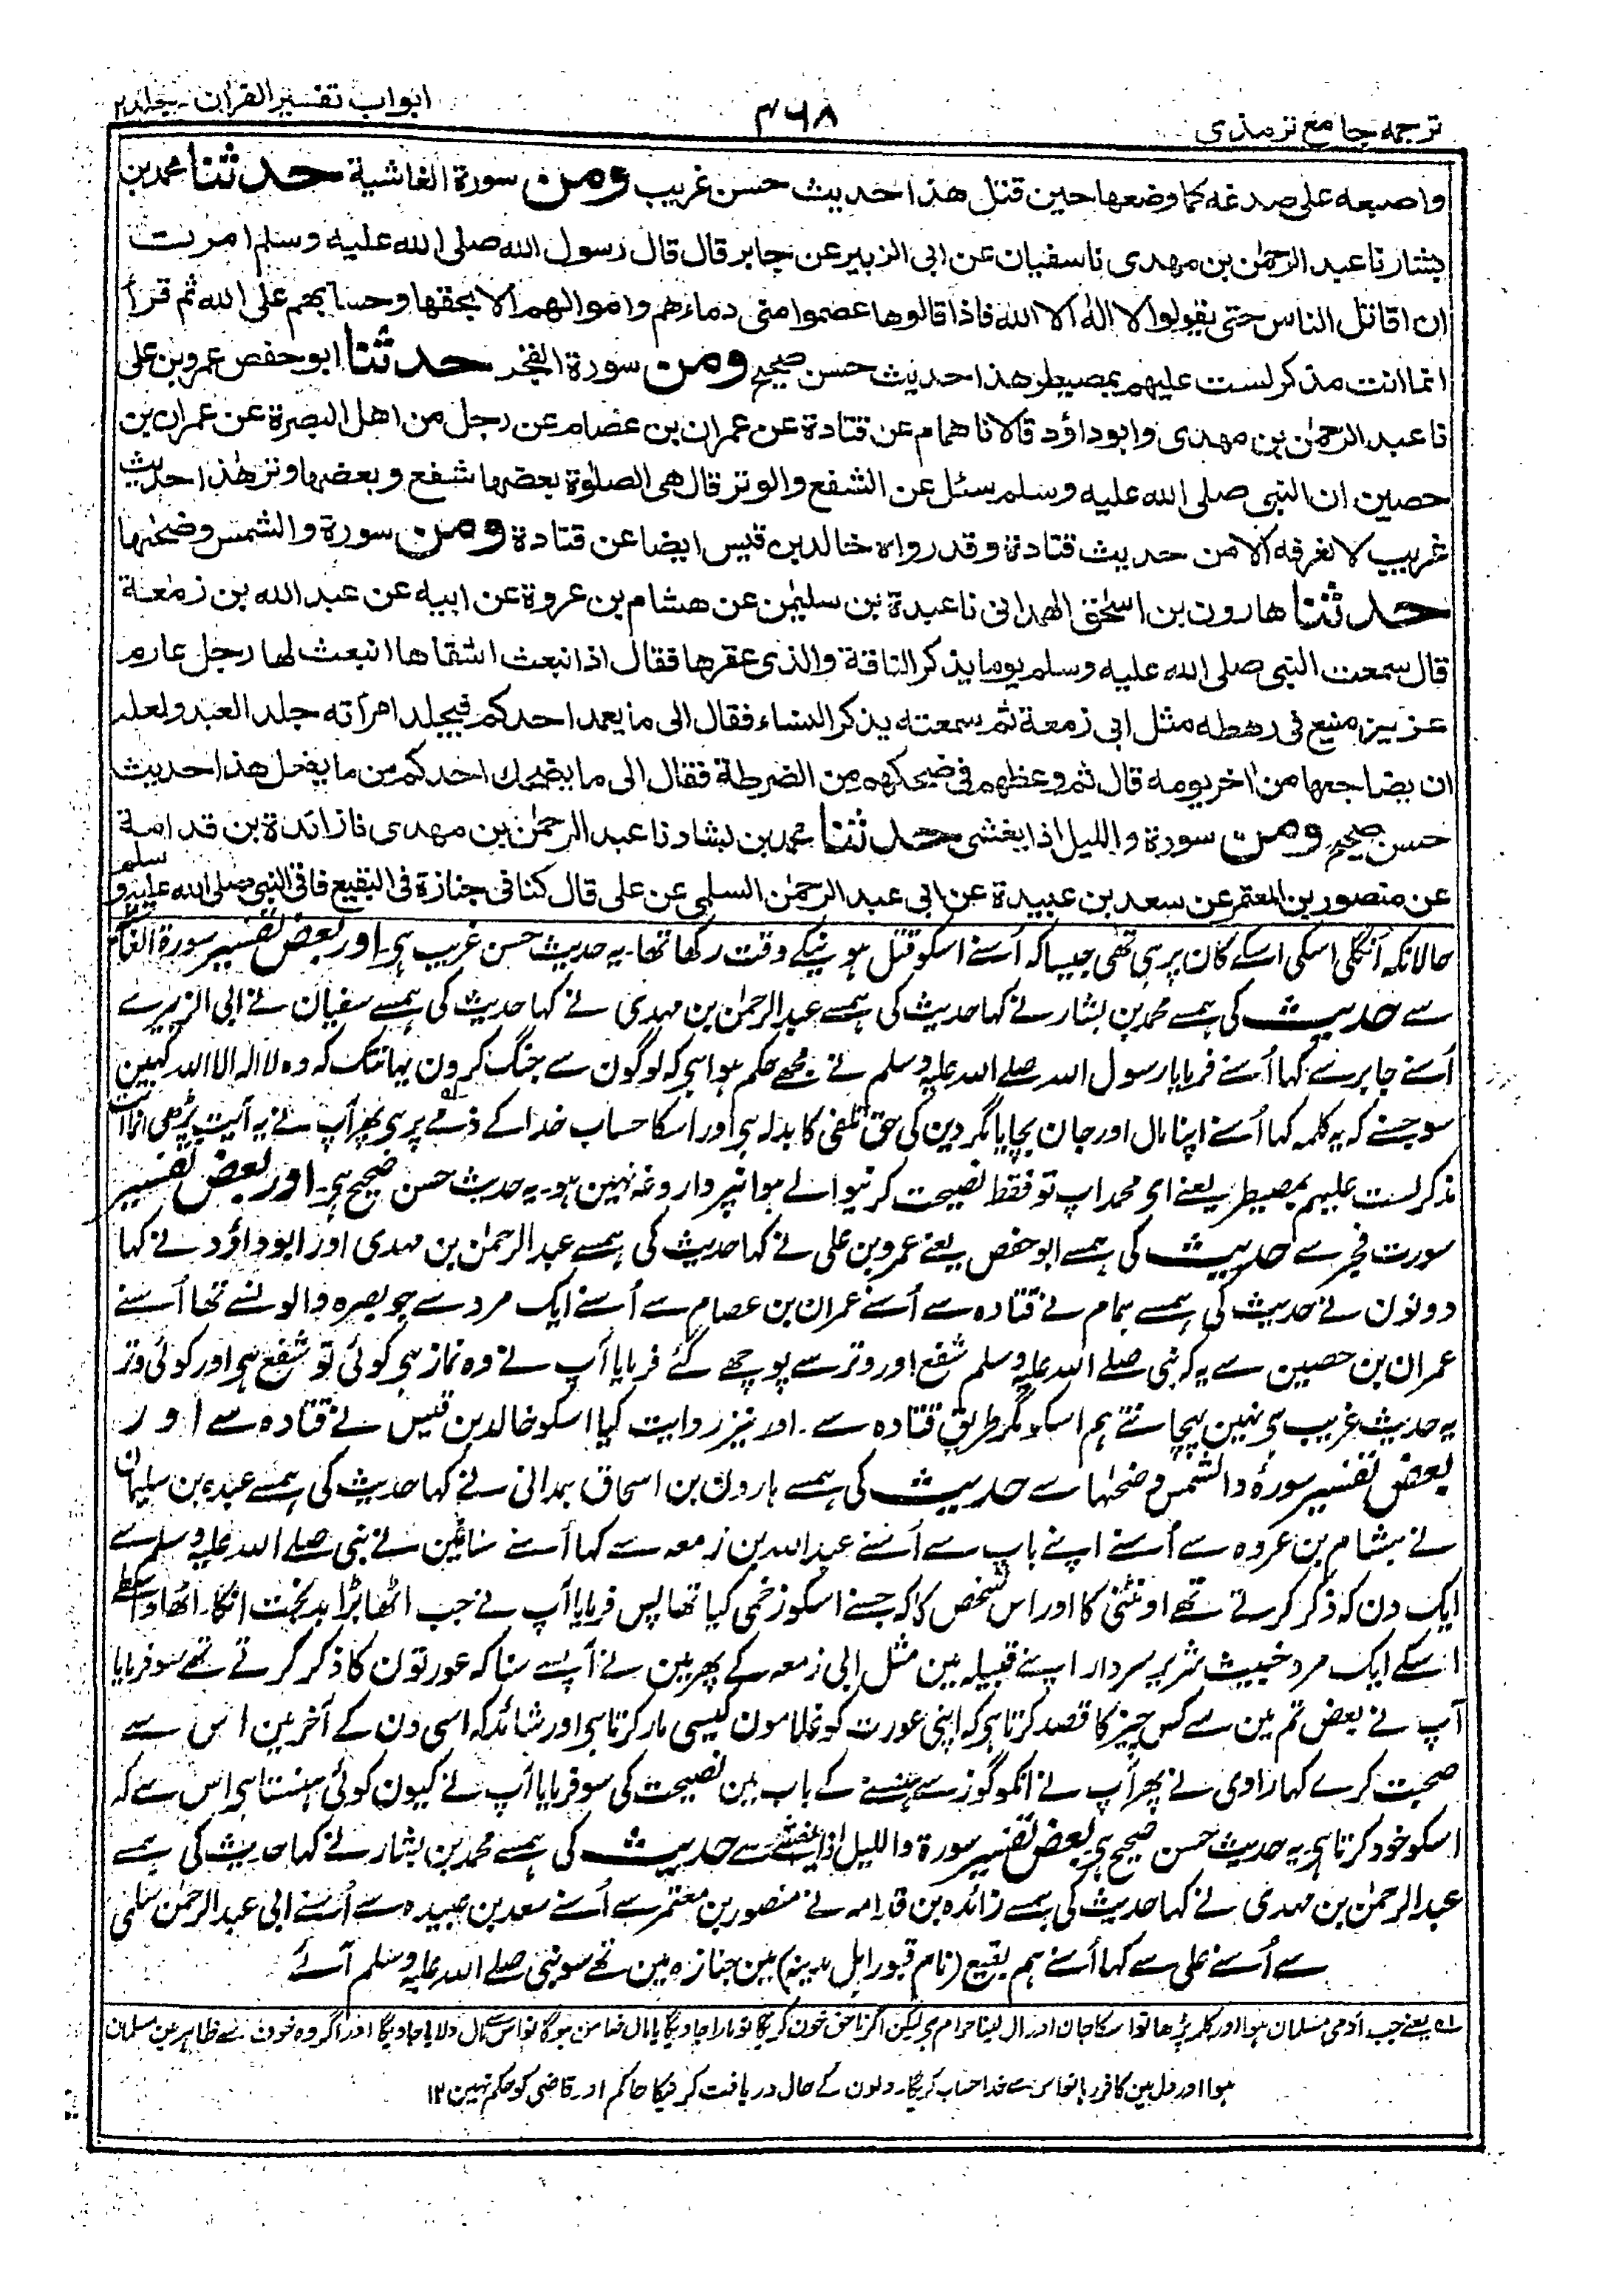 ترجمہ جامع ترمذی
۴۶۸
ابواب تفسیر القرآن - جلد۲
واصبعه علی صدغه کما وضعها حین قتل هذا حدیث حسن غریب ومن سورة الغاشیة حدثنا محمد بن
بشار نا عبد الرحمٰن بن مهدی نا سفیان عن ابی الزبیر عن جابر قال قال رسول الله صلی الله علیه وسلم امرت
ان اقاتل الناس حتی یقولوا لا الٰه الا الله فاذا قالوها عصموا منی دماءهم واموالهم الا بحقها وحسابهم علی الله ثم قرأ
انما انت مذکر لست علیهم بمصیطر هذا حدیث حسن صحیح ومن سورة الفجر حدثنا ابو حفص عمرو بن علی
نا عبد الرحمٰن بن مهدی وابو داؤد قالا نا همام عن قتادة عن عمران بن عصام عن رجل من اهل البصرة عن عمران بن
حصین ان النبی صلی الله علیه وسلم سئل عن الشفع والوتر قال هی الصلوٰة بعضها شفع وبعضها وتر هٰذا حدیث
غریب لا نعرفه الا من حدیث قتادة وقد رواه خالد بن قیس ایضا عن قتادة ومن سورة والشمس وضحٰها
حدثنا هارون بن اسحٰق الهمدانی نا عبدة بن سلیمٰن عن هشام بن عروة عن ابیه عن عبد الله بن زمعة
قال سمعت النبی صلی الله علیه وسلم یوما یذکر الناقة والذی عقرها فقال اذ انبعث اشقاها انبعث لها رجل عارم
عزیز منیع فی رهطه مثل ابی زمعة ثم سمعته یذکر النساء فقال الی ما یعمد احدکم فیجلد امرأته جلد العبد ولعله
ان یضاجعها من اٰخر یومه قال ثم وعظهم فی ضحکهم من الضرطة فقال الی ما یضحك احدکم من ما یفعل هذا حدیث
حسن صحیح ومن سورة واللیل اذا یغشی حدثنا محمد بن بشار نا عبد الرحمٰن بن مهدی نا زائدة بن قدامة
عن منصور بن المعتمر عن سعد بن عبیدة عن ابی عبد الرحمٰن السلمی عن علی قال کنا فی جنازة فی البقیع فاتی النبی صلی الله علیه و سلم
حالانکہ اُنگلی اسکی اسکے کان پر ہی تھی جیسا کہ اُسنے اسکو قتل ہونیکے وقت رکھا تھا۔ یہ حدیث حسن غریب ہی۔ اور بعض تفسیر سورۃ الغاشیہ
سے حدیث کی ہمسے محمد بن بشار نے کہا حدیث کی ہمسے عبد الرحمٰن بن مہدی نے کہا حدیث کی ہمسے سفیان نے ابی الزبیر سے
اُسنے جابر سے کہا اُسنے فرمایا رسول اللہ صلے اللہ علیہ وسلم نے مجھے حکم ہوا ہی کہ لوگون سے جنگ کرون یہانتک کہ وہ لا الہ الا اللہ کہین
سو جسنے کہ یہ کلمہ کہا اُسنے اپنا مال اور جان بچایا مگر دین کی حق تلفی کا بدلہ ہی اور اسکا حساب خدا کے ذمے پر ہی پھر آپ نے یہ آیت پڑھی انما انت
مذکر لست علیہم بمصیطر یعنے ای محمد اپ تو فقط نصیحت کرنیوالے ہو انپر داروغہ نہین ہو۔ یہ حدیث حسن صحیح ہی۔ اور بعض تفسیر
سورت فجر سے حدیث کی ہمسے ابو حفص یعنے عمرو بن علی نے کہا حدیث کی ہمسے عبد الرحمٰن بن مہدی اور ابو داؤد نے کہا
دونون نے حدیث کی ہمسے ہمام نے قتادہ سے اُسنے عمران بن عصام سے اُسنے ایک مرد سے جو بصرہ والونسے تھا اُسنے
عمران بن حصین سے یہ کہ نبی صلے اللہ علیہ وسلم شفع اور وتر سے پوچھے گئے فرمایا آپ نے وہ نماز ہی کوئی تو شفع ہی اور کوئی وتر
یہ حدیث غریب ہی نہین پہچانتے ہم اسکو مگر طریق قتادہ سے۔ اور نیز روایت کیا اسکو خالد بن قیس نے قتادہ سے اور
بعض تفسیر سورۂ والشمس وضحٰہا سے حدیث کی ہمسے ہارون بن اسحاق ہمدانی نے کہا حدیث کی ہمسے عبدہ بن سلیمان
نے ہشام بن عروہ سے اُسنے اپنے باپ سے اُسنے عبد اللہ بن زمعہ سے کہا اُسنے سنا مین نے نبی صلے اللہ علیہ وسلم سے
ایک دن کہ ذکر کرتے تھے اونٹنی کا اور اس شخص کا کہ جسنے اسکو زخمی کیا تھا پس فرمایا آپ نے جب اٹھا بڑا بدبخت انکا۔ اٹھا واسطے
اسکے ایک مرد خبیث شریر سردار اپنے قبیلہ مین مثل ابی زمعہ کے پھر مین نے آپسے سنا کہ عورتون کا ذکر کرتے تھے سو فرمایا
آپ نے بعض تم مین سے کس چیز کا قصد کرتا ہی کہ اپنی عورت کو غلامون کیسی مار کرتا ہی اور شائد کہ اسی دن کے آخر مین اس سے
صحبت کرے کہا راوی نے پھر آپ نے انکو گوز سے ہنسنے کے باب مین نصیحت کی سو فرمایا آپ نے کیون کوئی ہنستا ہی اس سے کہ
اسکو خود کرتا ہی۔ یہ حدیث حسن صحیح ہی بعض تفسیر سورۃ واللیل اذا یغشے سے حدیث کی ہمسے محمد بن بشار نے کہا حدیث کی ہمسے
عبد الرحمٰن بن مہدی نے کہا حدیث کی ہمسے زائدہ بن قدامہ نے منصور بن معتمر سے اُسنے سعد بن عبیدہ سے اُسنے ابی عبد الرحمٰن سلمی
سے اُسنے علی سے کہا اُسنے ہم بقیع (نام قبور اہل مدینہ) مین جنازہ مین تھے سو نبی صلے اللہ علیہ وسلم آئے
۱ه یعنے جب آدمی مسلمان ہوا اور کلمہ پڑھا تو اسکا جان اور مال لینا حرام ہی لیکن اگر ناحق خون کریگا تو مارا جاویگا یا مال ضامن ہوگا تو اس سے مال دلایا جاویگا اور اگر وہ خوف سے ظاہر مین مسلمان
ہوا اور دل مین کافر رہا تو اس سے خدا حساب کریگا۔ دلون کے حال دریافت کرنیکا حاکم اور قاضی کو حکم نہین ۱۲